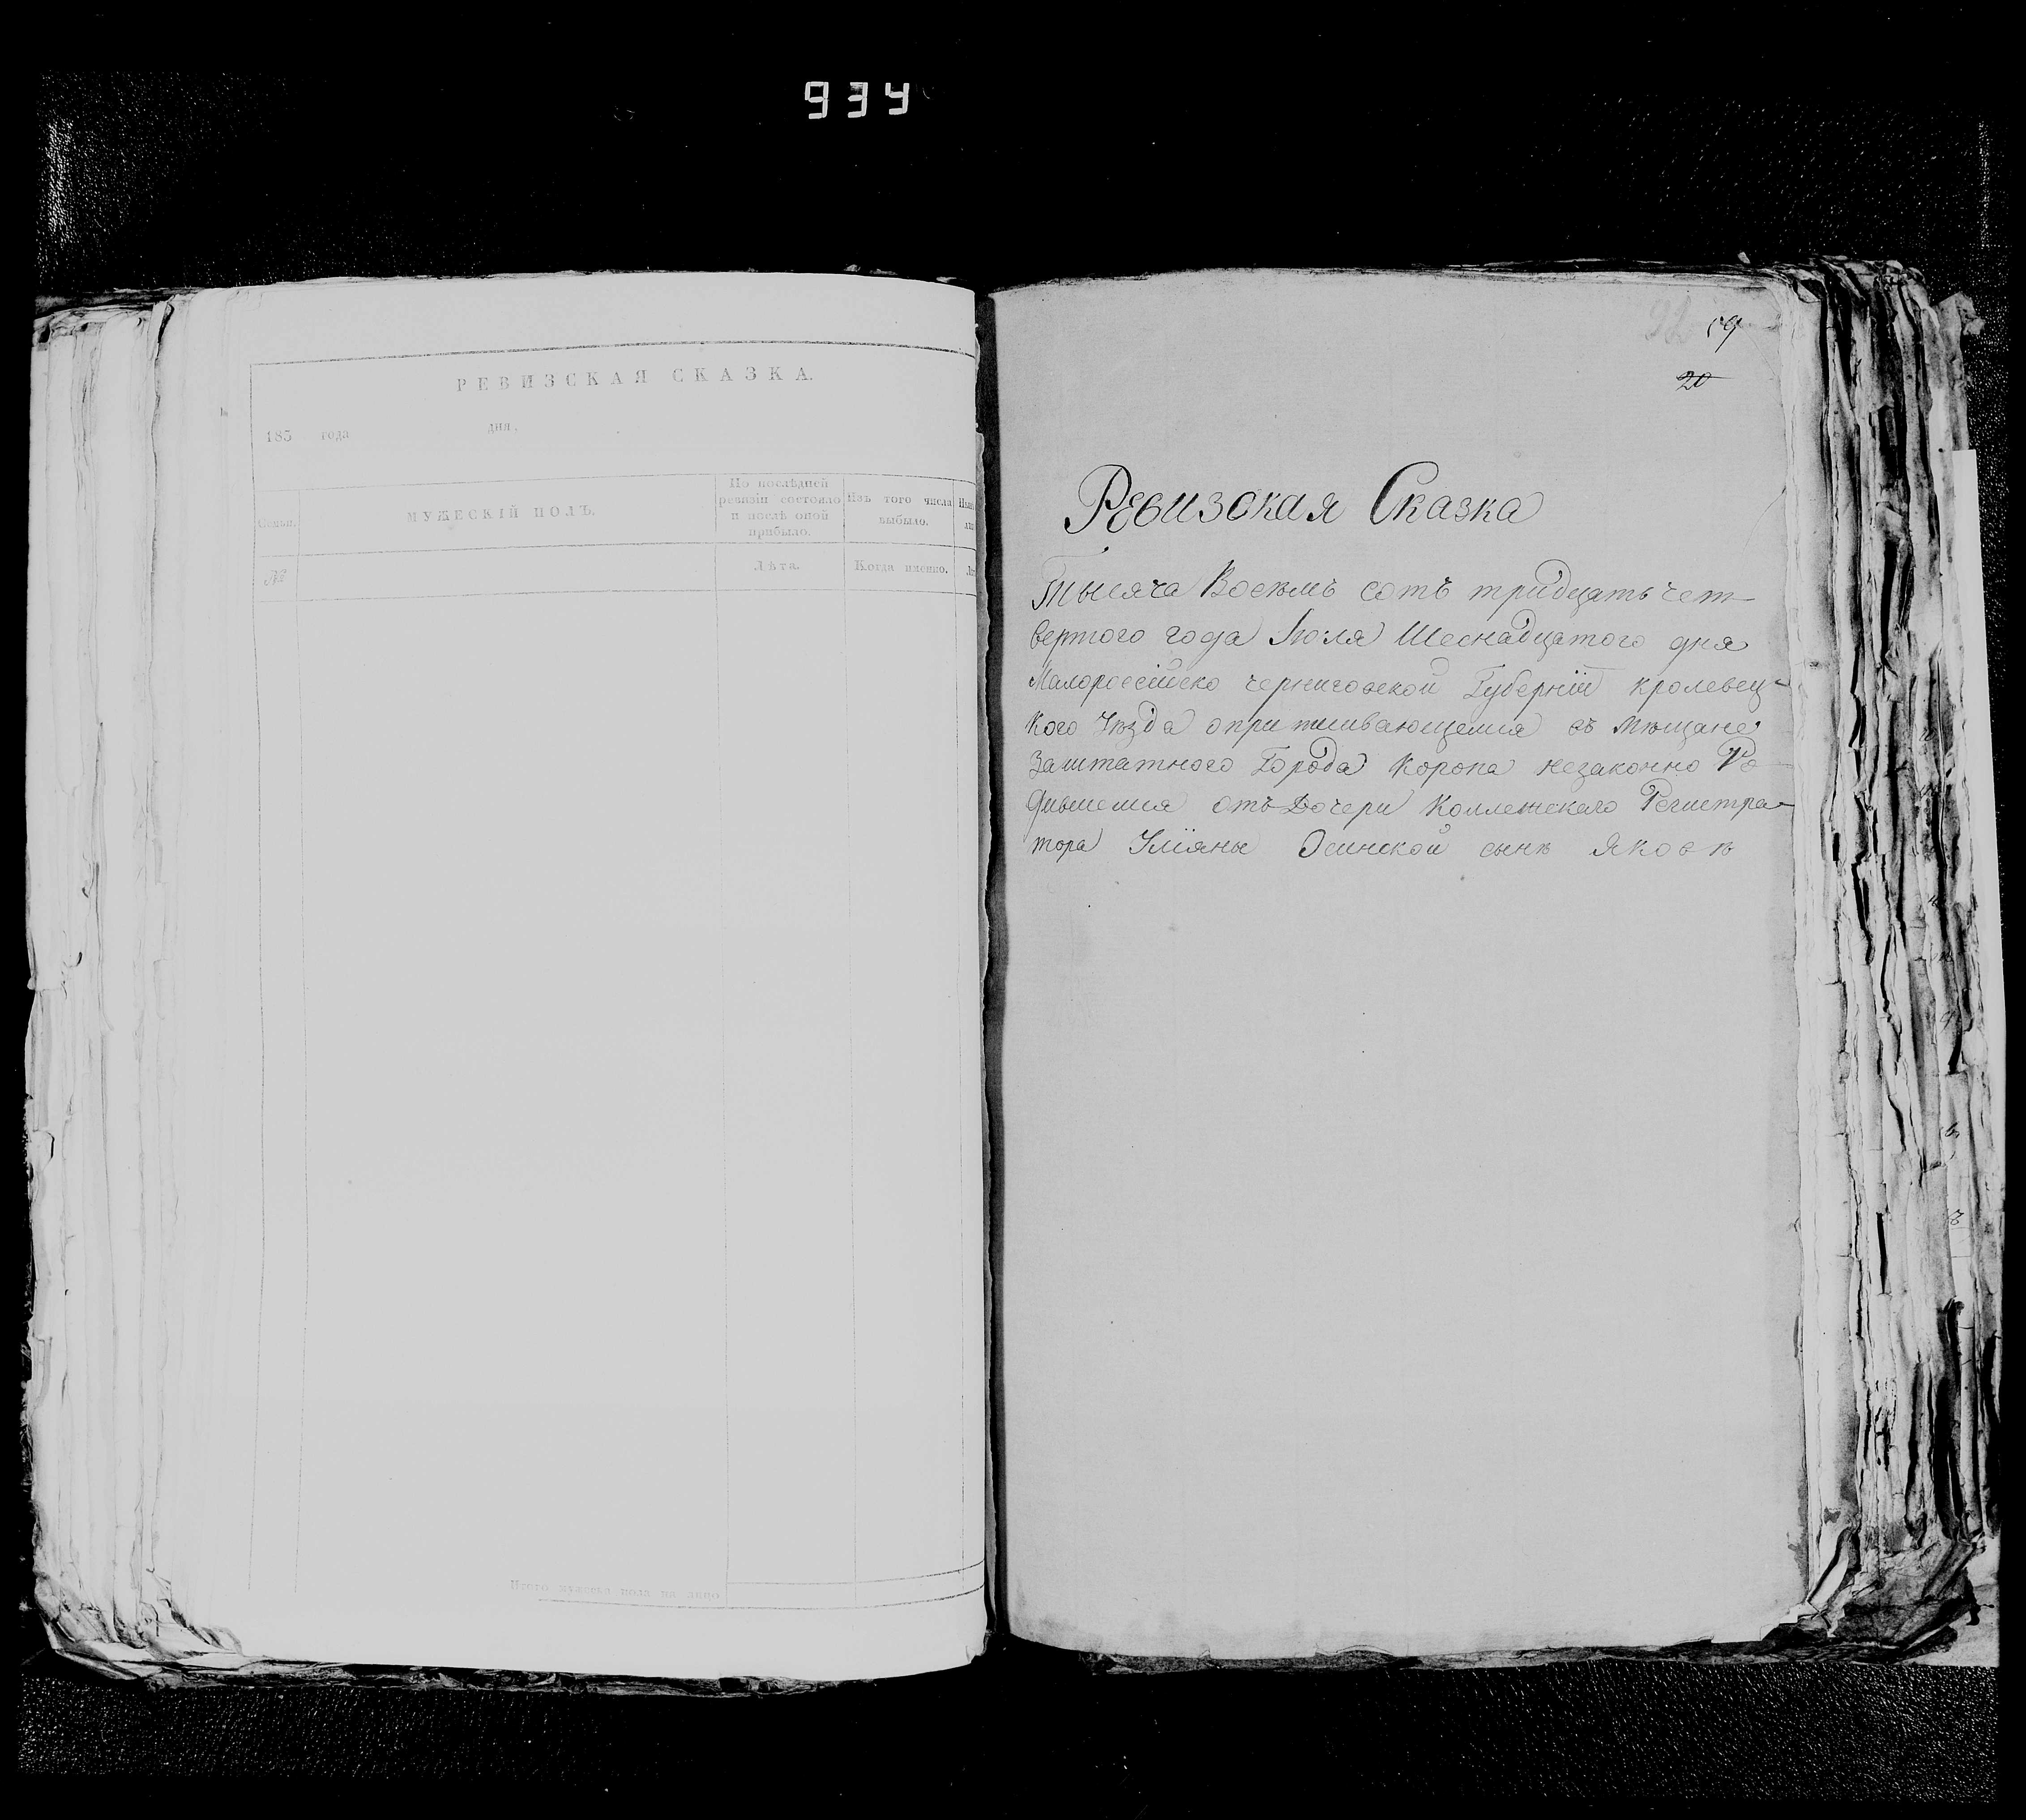 934
РЕВИЗСКАЯ СКАЗКА.
183 года дня.
Семьи.
МУЖЕСКІЙ ПОЛЪ.
По послѣдней
ревизіи состояло
и послѣ оной
прибыло.
Изъ того числа
выбыло.
№
Лѣта.
Когда именно.
Итого мужеска пола на лицо
20
Ревизская Сказка
Тысяча Восемъ сотъ тридцать чет-
вертого года Июля Шеснадцатого дня
Малороссійско черниговской Губерніи кролевец-
кого Уѣзда о приписивающемся въ Мѣщане
Заштатного Города Коропа незаконно Ро-
дившемся отъ Дочери Коллежскаго Регистра-
тора Уліяны Осинской сынѣ Яковѣ